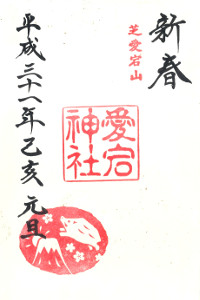 新春
芝愛宕山
愛宕
神社
平成三十一年乙亥 元旦